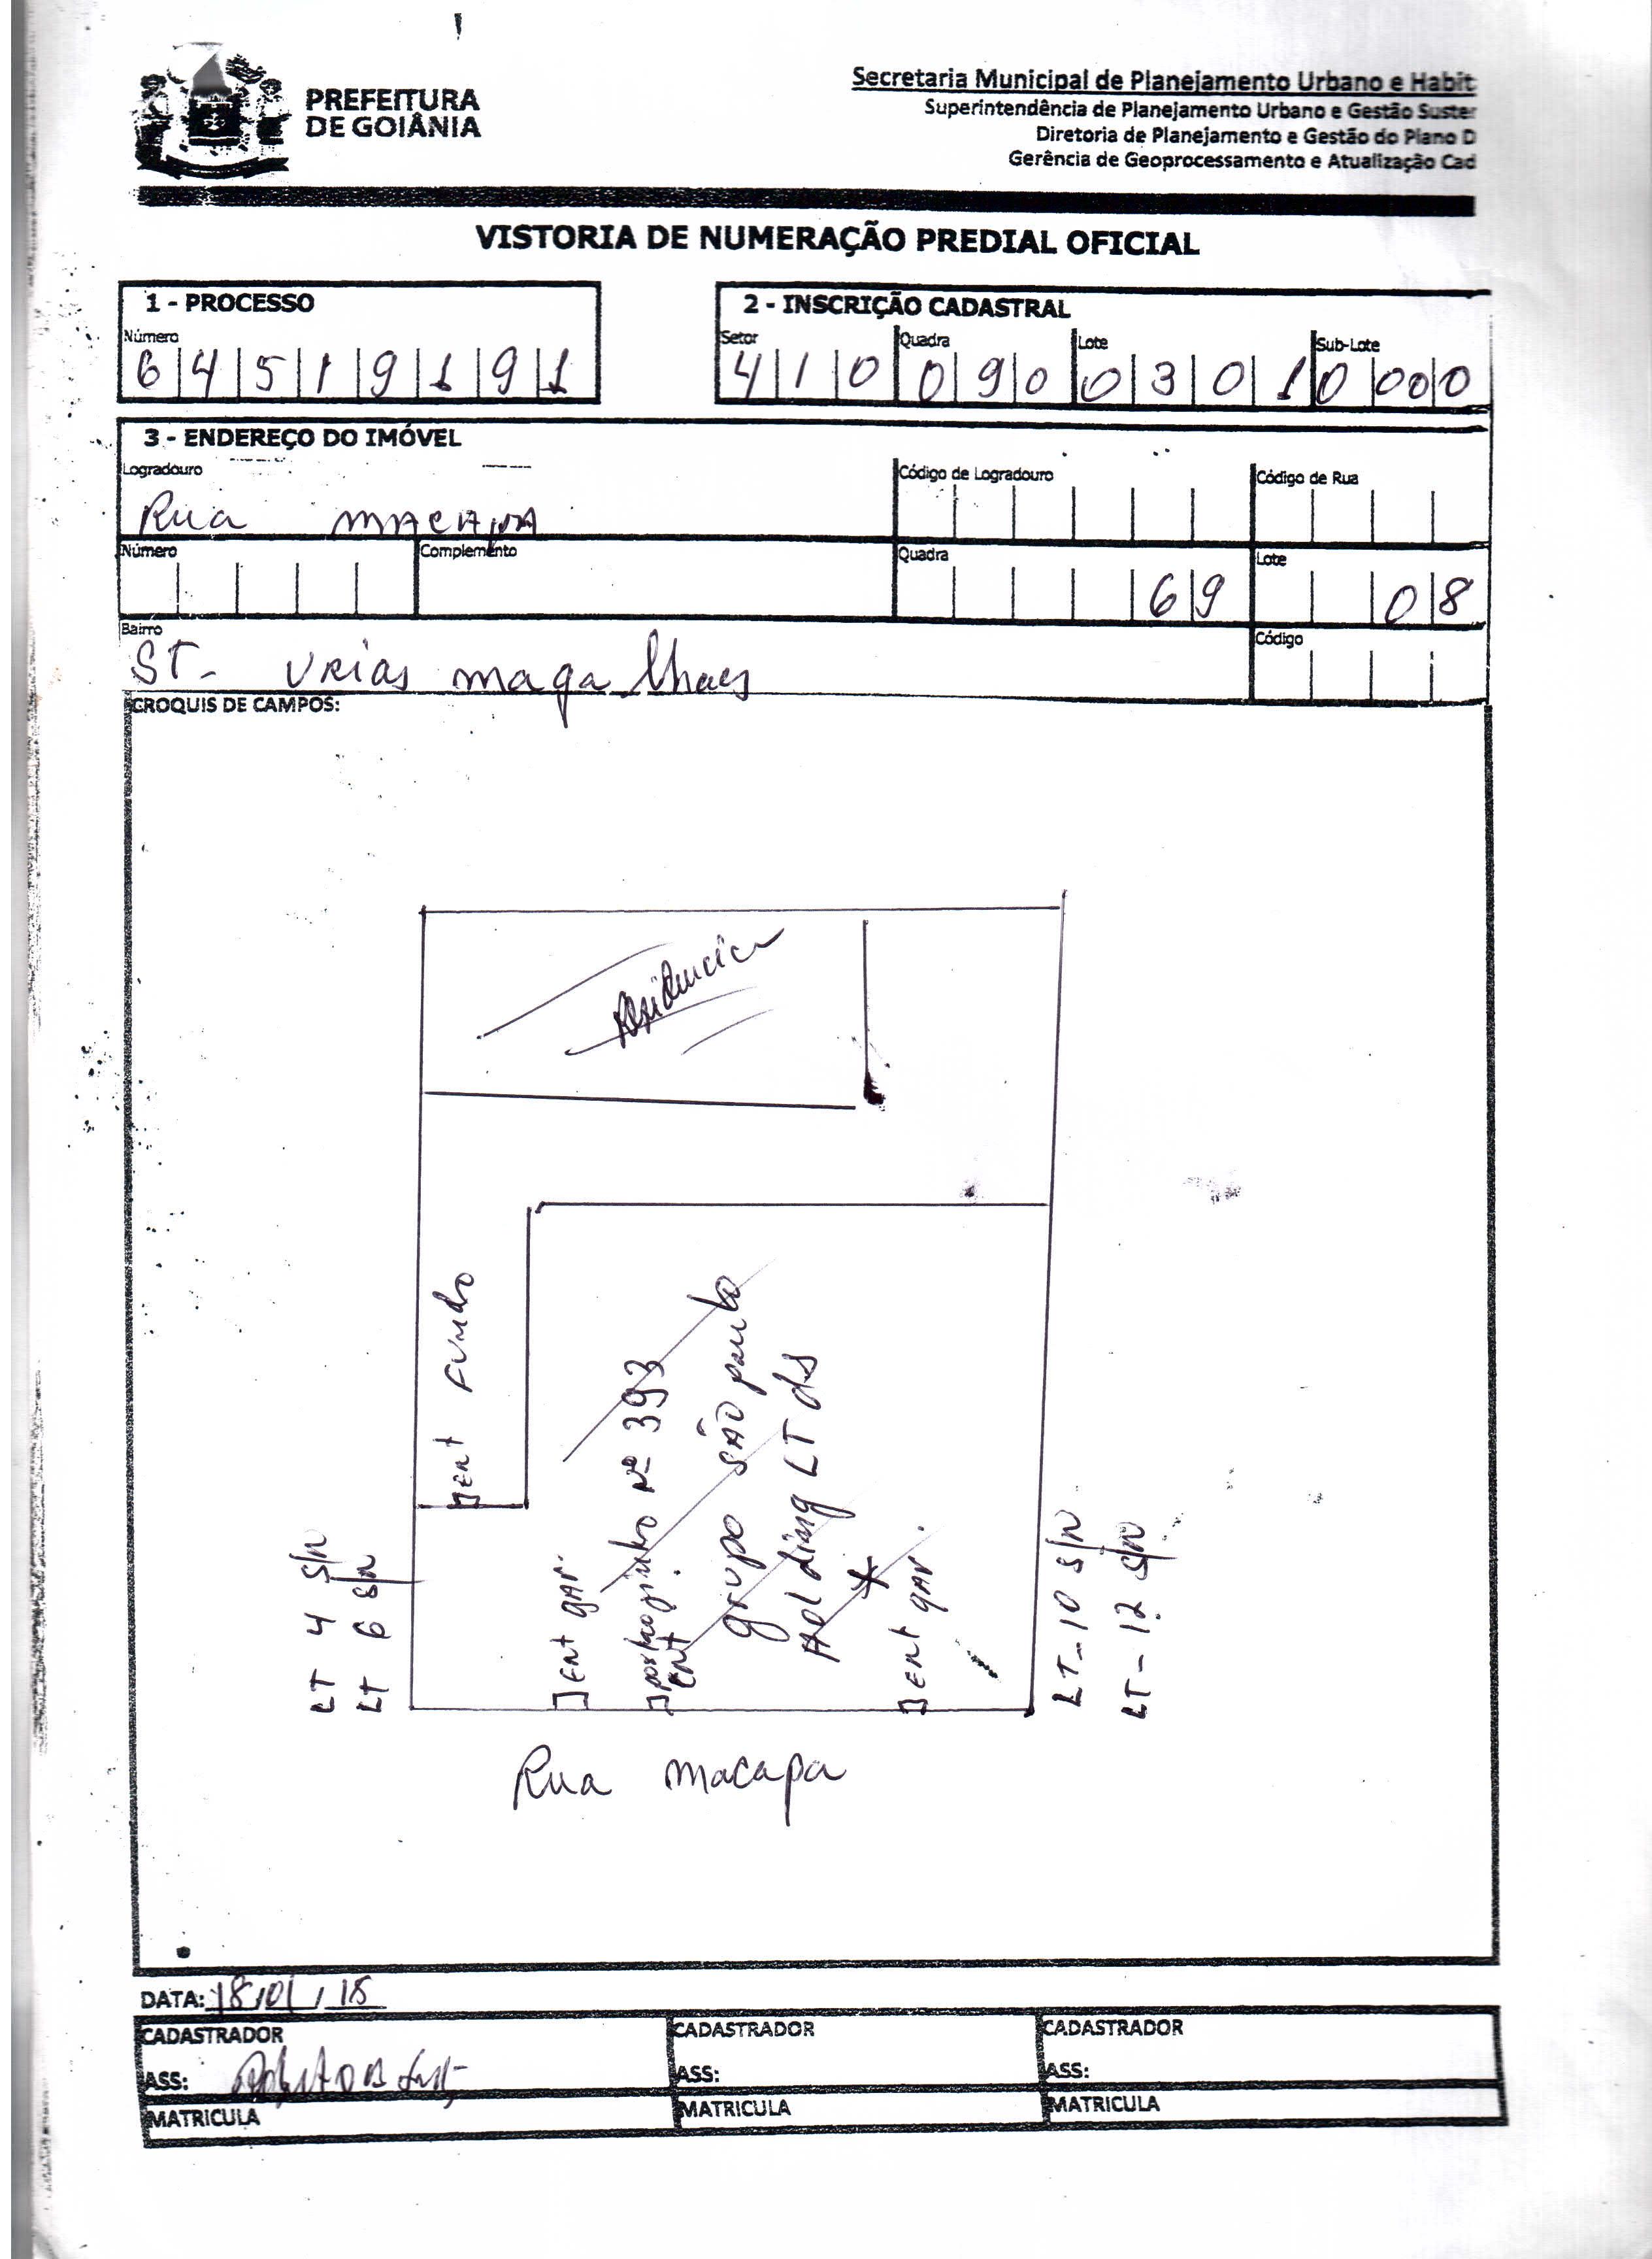 PREFEITURA
DE GOIÂNIA
Secretaria Municipal de Planejamento Urbano e Habit
Superintendência de Planejamento Urbano e Gestão Suste
Diretoria de Planejamento e Gestão do Plano D
Gerência de Geoprocessamento e Atualização Cad
VISTORIA DE NUMERAÇÃO PREDIAL OFICIAL
1 - PROCESSO
Número
6 4 5 1 9 1 9 1
2 - INSCRIÇÃO CADASTRAL
Setor Quadra Lote Sub-Lote
4 1 0 0 9 0 0 3 0 1 0 0 0 0
3 - ENDEREÇO DO IMÓVEL
Logradouro
Rua MACAPA
Código de Logradouro
Código de Rua
Número
Complemento
Quadra
6 9
Lote
0 8
Bairro
ST- Urias magalhaes
Código
CROQUIS DE CAMPOS:
Residencia
Ent Fundo
LT 4 S/N
LT 6 S/N
Ent gar.
Nº 393
Ent.
grupo SÃO paulo
Holding LT ds
Ent gar.
LT - 10 S/N
LT - 12 S/N
Rua macapa
DATA: 18/01/18
CADASTRADOR
ASS:
MATRICULA
CADASTRADOR
ASS:
MATRICULA
CADASTRADOR
ASS:
MATRICULA